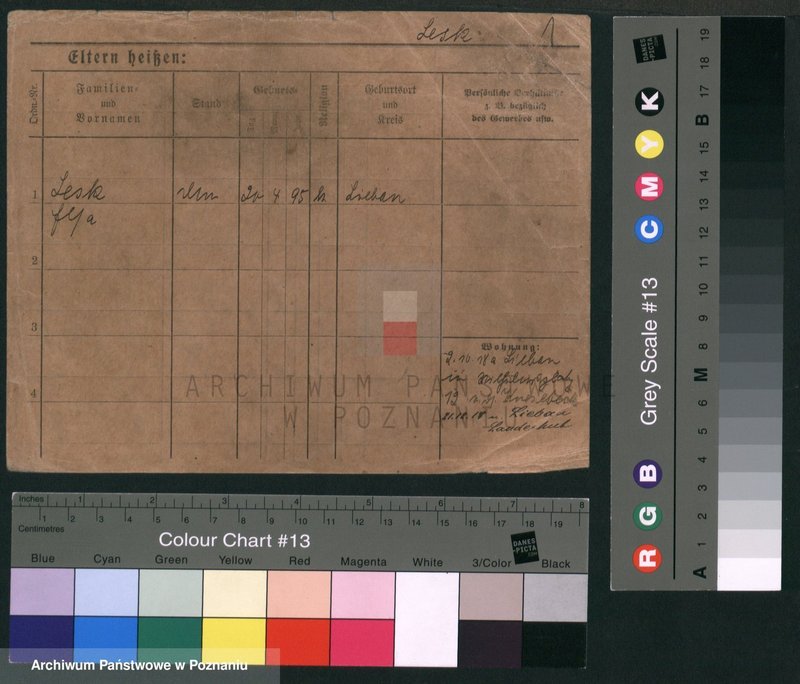 Lesk. 1
Eltern heißen:
Ordn.-Nr.
Familien-
und
Vornamen
Stand
Geburts-
Tag
Jahr
Religion
Geburtsort
und
Kreis
Persönliche Verhältnisse
z. B. bezüglich
des Gewerbes usw.
1 Lesk 20 4 95 Lieban
2
3
4
Wohnung:
2.10.18 a Lieban
12
21.10.18 n. Liebau
Landeshut
ARCHIWUM PAŃSTWOWE
W POZNANIU
Inches 1 2 3 4 5 6 7 8
1 2 3 4 5 6 7 8 9 10 11 12 13 14 15 16 17 18 19
Centimetres
Colour Chart #13
DANES
-PICTA
.COM
Blue Cyan Green Yellow Red Magenta White 3/Color Black
Archiwum Państwowe w Poznaniu
Grey Scale #13
R G B C M Y K
DANES
-PICTA
.COM
A 1 2 3 4 5 6 M 8 9 10 11 12 13 14 15 B 17 18 19